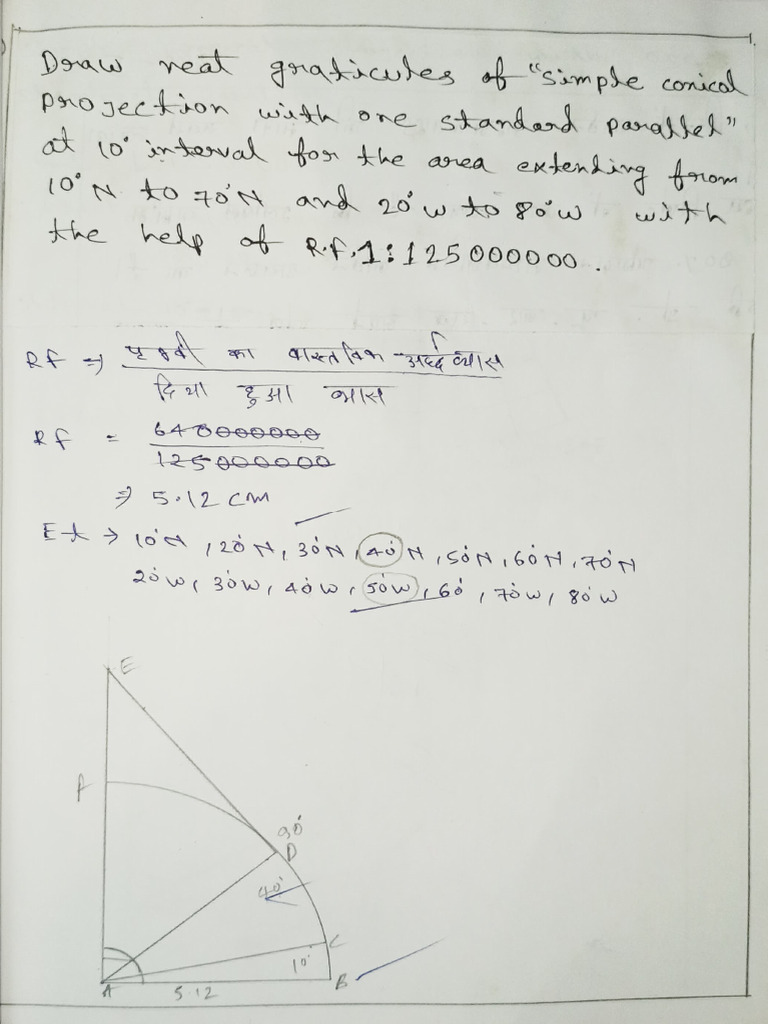 Draw neat graticules of "simple conical
projection with one standard parallel"
at 10° interval for the area extending from
10°N to 70°N and 20°w to 80°w with
the help of R.f. 1:125000000.
Rf ⇒ पृथ्वी का वास्तविक अर्द्धव्यास
दिया हुआ
Rf = 640000000
125000000
⇒ 5.12 cm
Ext → 10°N, 20°N, 30°N, 40°N, 50°N, 60°N, 70°N
20°w, 30°w, 40°w, 50°w, 60°, 70°w, 80°w
E
90°
D
40°
C
10°
A
5.12
B